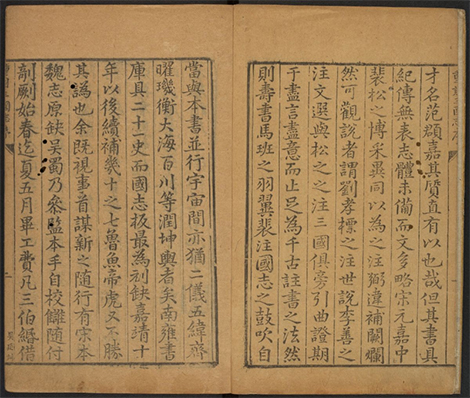 才名范頵嘉其質直有以也哉但其書具
紀傳無表志體未備而文多略宋元嘉中
裴松之博采異同以為之注彌違補闕爛
然可觀說者謂劉孝標之注世說李善之
注文選與松之之注三國俱旁引曲證期
于盡言盡意而止足為千古註書之法然
則壽書馬班之羽翼裴注國志之鼓吹自
當與本書並行宇宙間亦猶二儀五緯齊
曜璣衡大海百川等潤坤輿者矣南雍書
庫具二十一史而國志板最為刓缺嘉靖十
年以後續補幾十之七魯魚帝虎又不勝
其譌也余既視事首謀新之隨行有宋本
魏志原缺吳蜀乃參監本手自校讎隨付
剞劂始春迄夏五月畢工費凡三伯緡借